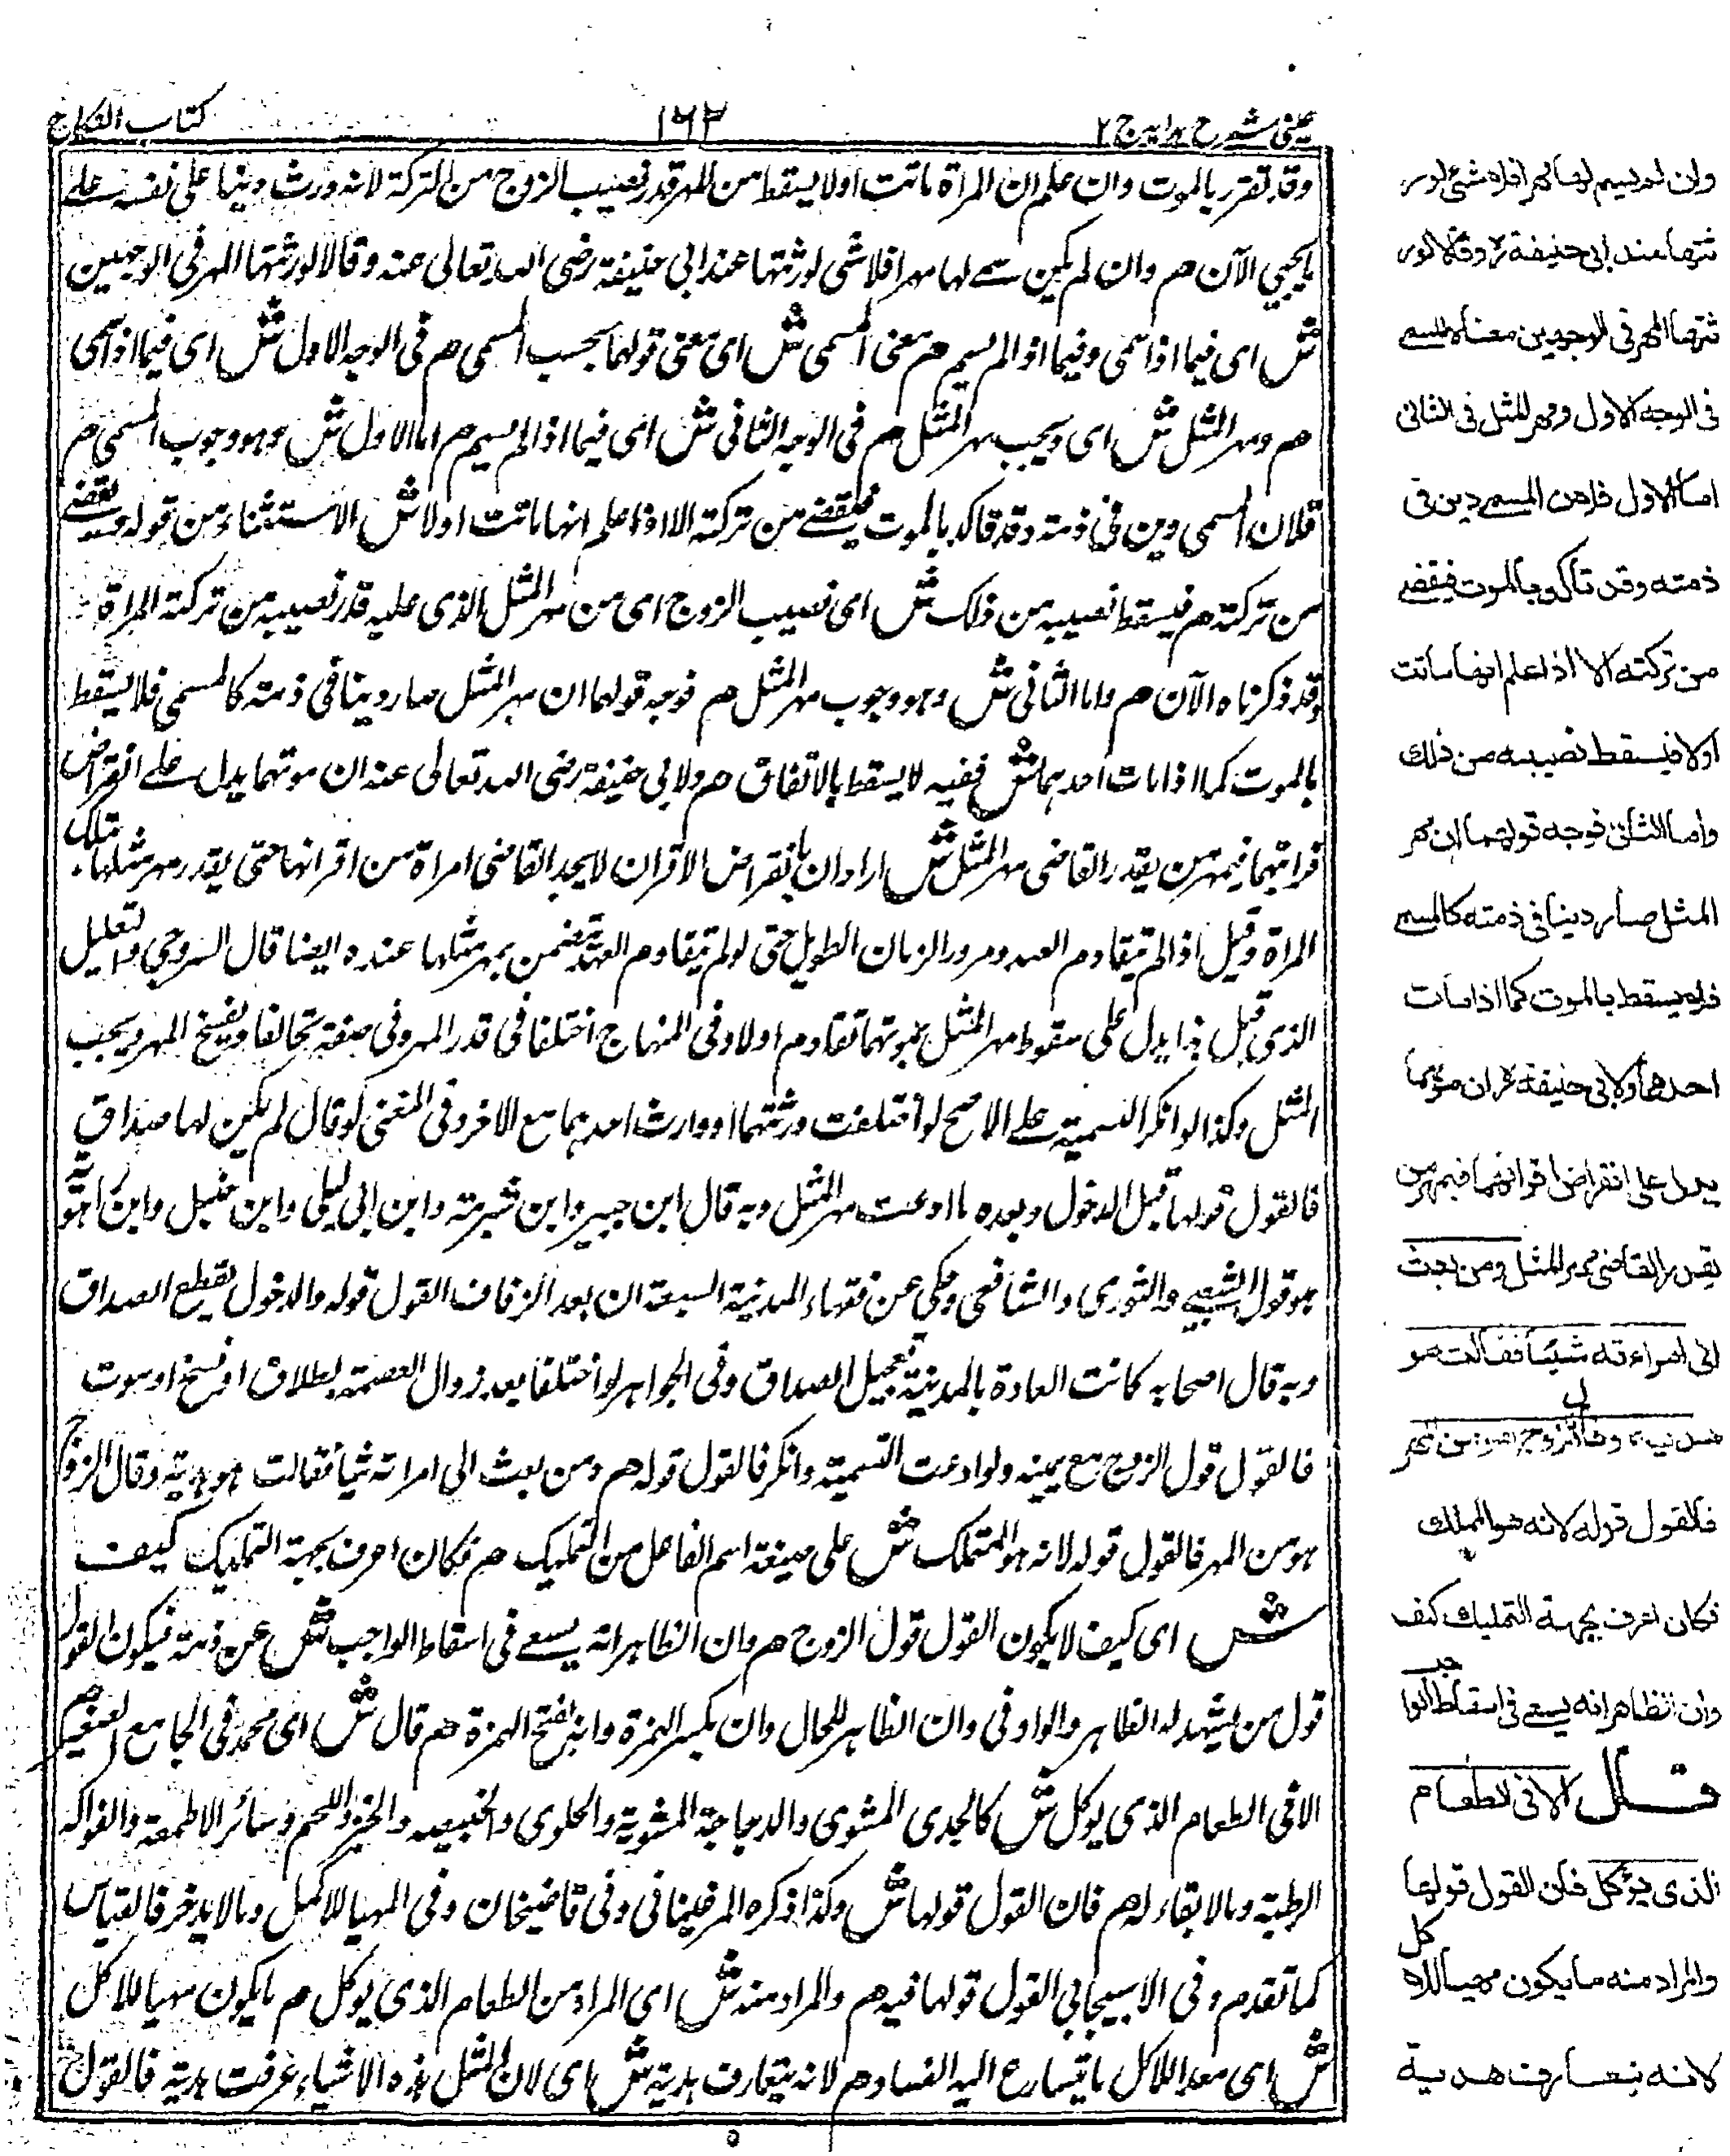 عینی شرح ہدایہ ج ۲
۱۶۲
کتاب النکاح
وقد تقرر بالموت وان علم ان المراة ماتت اولا يسقط من المهر قدر نصيب الزوج من التركة لانه ورث دينا على نفسه على
ما يجيي الآن هم وان لم يكن سمے لها مهرا فلا شي لورثتها عند ابي حنيفة رضى الله تعالى عنه وقالا لورثتها المهر في الوجهين
ش اى فيما اذا سمى وفيما اذا لم يسم هم معنى المسمى ش اى معنى قولهما بحسب المسمى هم في الوجه الاول ش اى فيما اذا سمى
هم ومهر المثل ش اى ويجب مهر المثل هم في الوجه الثانى ش اى فيما اذا لم يسم هم اما الاول ش وهو وجوب المسمى هم
فلان المسمى دين في ذمته وقد تاكد بالموت فيقضے من تركته الا اذا علم انها ماتت اولا ش الاستثناء من قوله فيقضے
من تركته هم فيسقط نصيبه من ذلك ش اى نصيب الزوج اى من مهر المثل الذى عليه قدر نصيبه من تركته المراة
وقد ذكرناه الآن هم واما الثانى ش وهو وجوب مهر المثل هم فوجه قولهما ان مهر المثل صار دينا في ذمته كالمسمى فلا يسقط
بالموت كما اذا مات احدهما ش ففيه لا يسقط بالاتفاق هم ولابى حنيفة رضى الله تعالى عنه ان موتهما يدل على انقراض
قرانهما فبمهر من يقدر القاضى مهر المثل ش اراد ان بانقراض الاقران لا يجد القاضى امراة من اقرانها حتى يقدر مهر مثلها تلك
المراة وقيل اذا لم يتقادم العهد ومرور الزمان الطويل حتى لو لم يتقادم العهد يضمن بمهر مثلها عنده ايضا قال السروجى والتعليل
الذى قبل هذا يدل على سقوط مهر المثل بموتهما تقادم اولا وفى المنهاج اختلفا فى قدر المهر وفى صفته تحالفا ويفسخ المهر ويجب
المثل وكذا لو انكر التسمية على الاصح لو اختلفت ورثتهما او وارث احدهما مع الاخر وفى المغنى لو قال لم يكن لها صداق
فالقول قولها قبل الدخول وبعده ما ادعت مهر المثل وبه قال ابن جبير وابن شبرمة وابن ابى ليلى وابن حنبل وابن راهويه
وهو قول الشعبے والثورى والشافعى وحكى عن فقهاء المدينة السبعة ان بعد الزفاف القول قوله والدخول يقطع الصداق
وبه قال اصحابه كانت العادة بالمدينة تعجيل الصداق وفى الجواهر لو اختلفا بعد زوال العصمة بطلاق او فسخ او موت
فالقول قول الزوج مع يمينه ولو ادعت التسمية وانكر فالقول قوله هم ومن بعث الى امراته شيا فقالت هو هدية وقال الزوج
هو من المهر فالقول قوله لانه هو المملك ش على صيغة اسم الفاعل من التمليك هم فكان اعرف بجهة التمليك كيف
ش اى كيف لا يكون القول قول الزوج هم وان الظاهر انه يسعے فى اسقاط الواجب ش عن ذمته فيكون القول
قول من يشهد له الظاهر والواو فى وان الظاهر للحال وان بكسر الهمزة وانه بفتح الهمزة هم قال ش اى محمد فى الجامع الصغير هم
الا فى الطعام الذى يوكل ش كالجدى المشوى والدجاجة المشوية والحلوى والخبيصه والخبز واللحم وسائر الاطعمة والفواكه
الرطبة وما لا بقاء له هم فان القول قولها ش وكذا ذكره المرغينانى وفى قاضيخان وفى المهيا للاكل وما لا يدخر فالقياس
كما تقدم وفى الاسبيجابى القول قولها فيه هم والمراد منه ش اى المراد من الطعام الذى يوكل هم ما يكون مهيا للاكل
ش اى معدا للاكل مما يتسارع اليه الفساد هم لانه يتعارف هدية ش اى لان المثل هذه الاشياء عرفت هدية فالقول
وان لم يسم لها مهرا فلا شئ لور
ثتها عند ابى حنيفة رح وقالا لور
ثتها المهر فى الوجهين معناه المسمے
فى الوجه الاول ومهر المثل فى الثانى
اما الاول فلان المسمے دين فى
ذمته وقد تاكد بالموت فيقضے
من تركته الا اذا علم انها ماتت
اولا فيسقط نصيبه من ذلك
واما الثانى فوجه قولهما ان مهر
المثل صار دينا فى ذمته كالمسمے
فلا يسقط بالموت كما اذا مات
احدهما ولابى حنيفة رح ان موتهما
يدل على انقراض اقرانهما فبمهر من
يقدر القاضى مهر المثل ومن بعث
الى امراءته شيئا فقالت هو
هدية وقال الزوج هو من المهر
فالقول قوله لانه هو المملك
فكان اعرف بجهة التمليك كيف
وان الظاهر انه يسعے فى اسقاط الواجب
قال الا فى الطعام
الذى يؤكل فان القول قولها
والمراد منه ما يكون مهيا للاكل
لانه يتعارف هدية